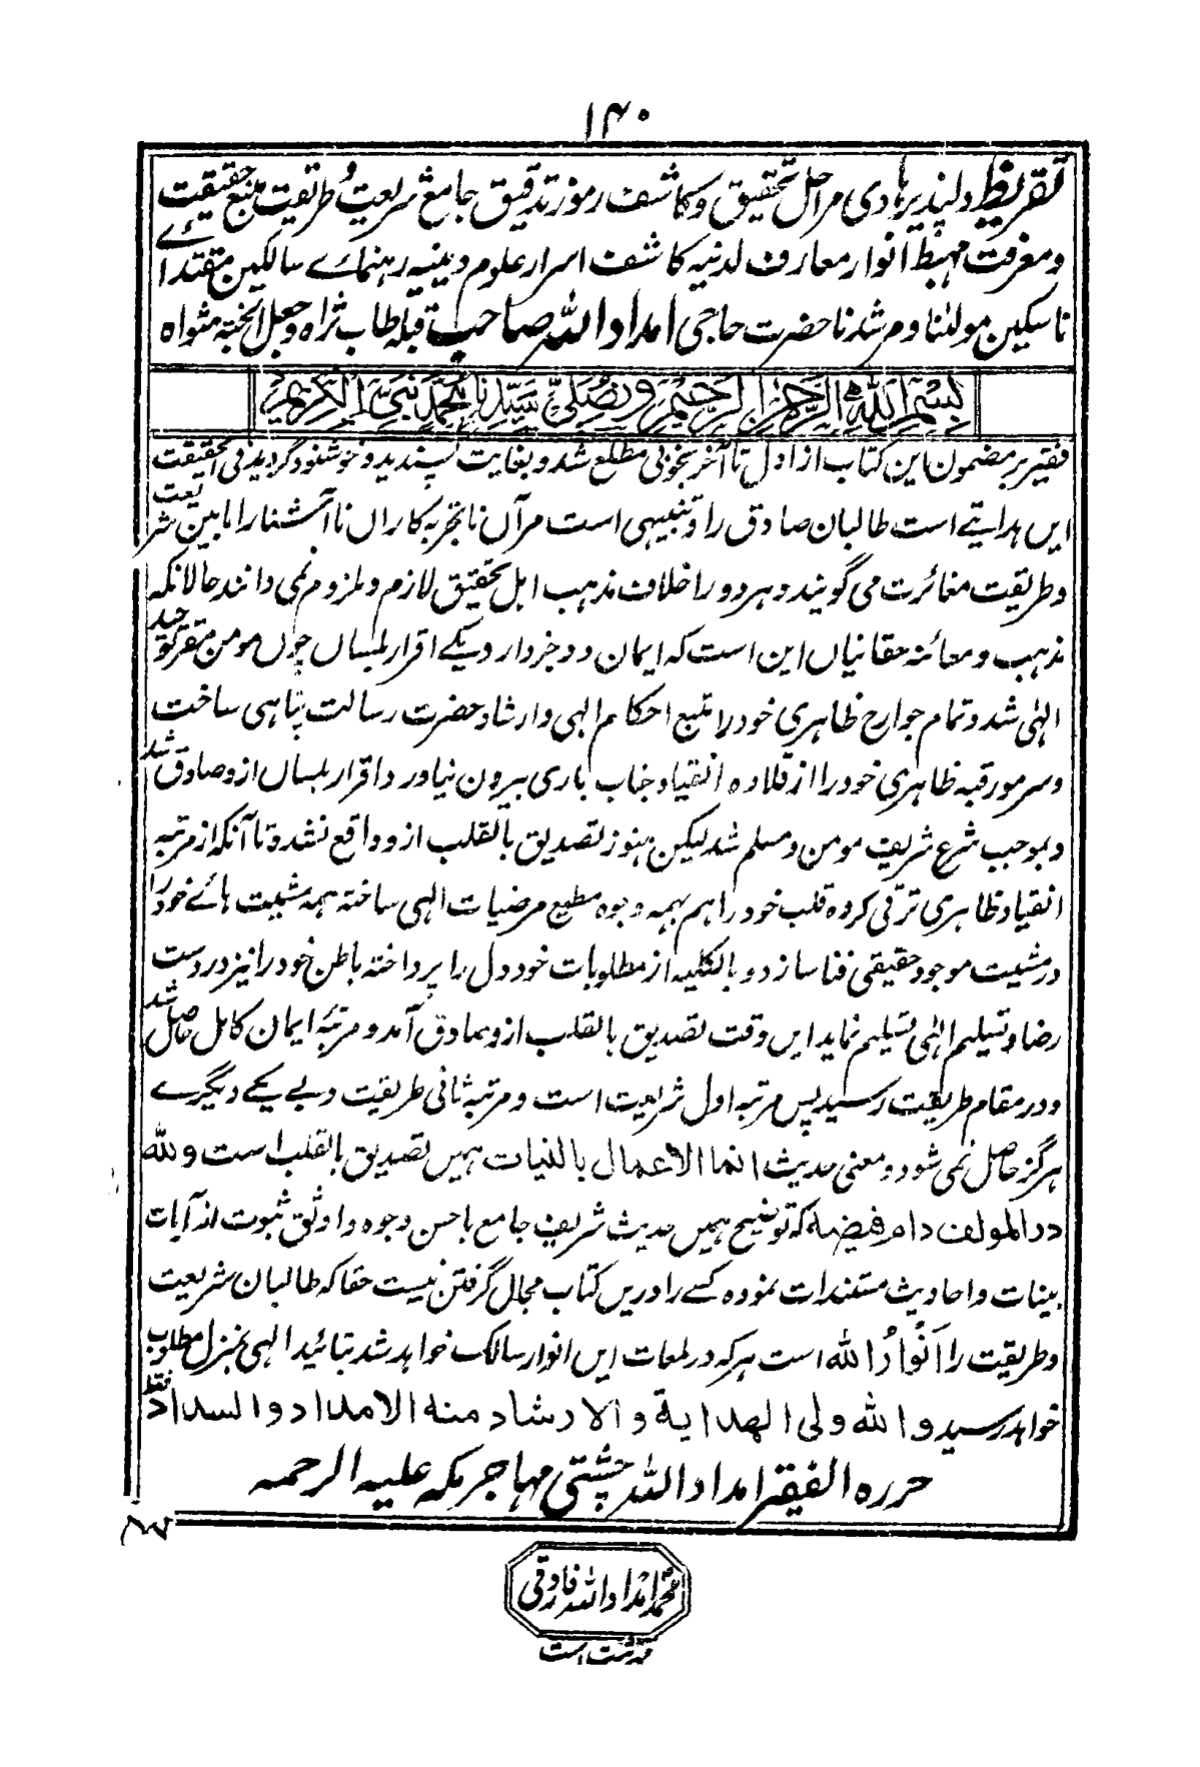 ۱۴۰
تقریظ دلپذیر ہادی مراحل تحقیق و کاشف رموز تدقیق جامع شریعت و طریقت منبع حقیقت
و معرفت مہبط انوار معارف لدنیہ کاشف اسرار علوم دینیہ رہنمائے سالکین مقتدائے
ناسکین مولٰنا و مرشدنا حضرت حاجی امداد اللہ صاحب قبلہ طاب ثراہ و جعل الجنۃ مثواہ
بِسْمِ اللهِ الرَّحْمٰنِ الرَّحِيْمِ وَنُصَلِّيْ سَيِّدِنَا مُحَمَّدٍ نَبِيِّهِ الْكَرِيْمِ
فقیر بر مضمون این کتاب از اول تا آخر بخوبی مطلع شد و بغایت پسندید و خوشنود گردید فی الحقیقت
ایں ہدایتے است طالبان صادق را و تنبیہی است مرآں ناتجربہ کاراں ناآشنا را مابین شریعت
و طریقت مغائرت می گویند و ہر دو را خلاف مذہب اہل تحقیق لازم و ملزوم نمی دانند حالانکہ
مذہب و معائنہ حقانیاں این است کہ ایمان دو جز دارد یکے اقرار بلساں چوں مومن مقر توحید
الہٰی شد و تمام جوارح ظاہری خود را متبع احکام الہی و ارشاد حضرت رسالت پناہی ساخت
و سر مو رقبہ ظاہری خود را از قلادہ انقیاد جناب باری بیرون نیاورد اقرار بلساں ازو صادق شد
و بموجب شرع شریف مومن و مسلم شد لیکن ہنوز تصدیق بالقلب ازو واقع نشدہ تا آنکہ از مرتبہ
انقیاد ظاہری ترقی کردہ قلب خود را ہم بہمہ وجوہ مطیع مرضیات الہی ساختہ ہمہ مشیت ہائے خود را
در مشیت موجود حقیقی فنا سازد و بالکلیہ از مطلوبات خود دل را پرداختہ باطن خود را نیز در دست
رضا و تسلیم الہٰی تسلیم نماید ایں وقت تصدیق بالقلب ازو صادق آمد و مرتبۂ ایمان کامل حاصل شد
و در مقام طریقت رسید پس مرتبہ اول شریعت است و مرتبہ ثانی طریقت و بے یکے دیگرے
ہرگز حاصل نمی شود و معنی حدیث انما الاعمال بالنیات ہمیں تصدیق بالقلب است و للہ
در المولف دام فیضہ کہ توضیح ہمیں حدیث شریف جامع باحسن وجوہ و اوثق ثبوت از آیات
بینات و احادیث مستندات نمودہ کسے را دریں کتاب مجال گرفتن نیست حقا کہ طالبان شریعت
و طریقت را اَنْوَارُ اللہ است ہر کہ در لمعات ایں انوار سالک خواہد شد بتائید الہی بمنزل مطلوب
خواہد رسید و اللہ ولی الھدایۃ و الارشاد منہ الامداد و السداد فقط
حررہ الفقیر امداد اللہ چشتی مہاجر مکہ علیہ الرحمہ
محمد امداد اللہ فاروقی